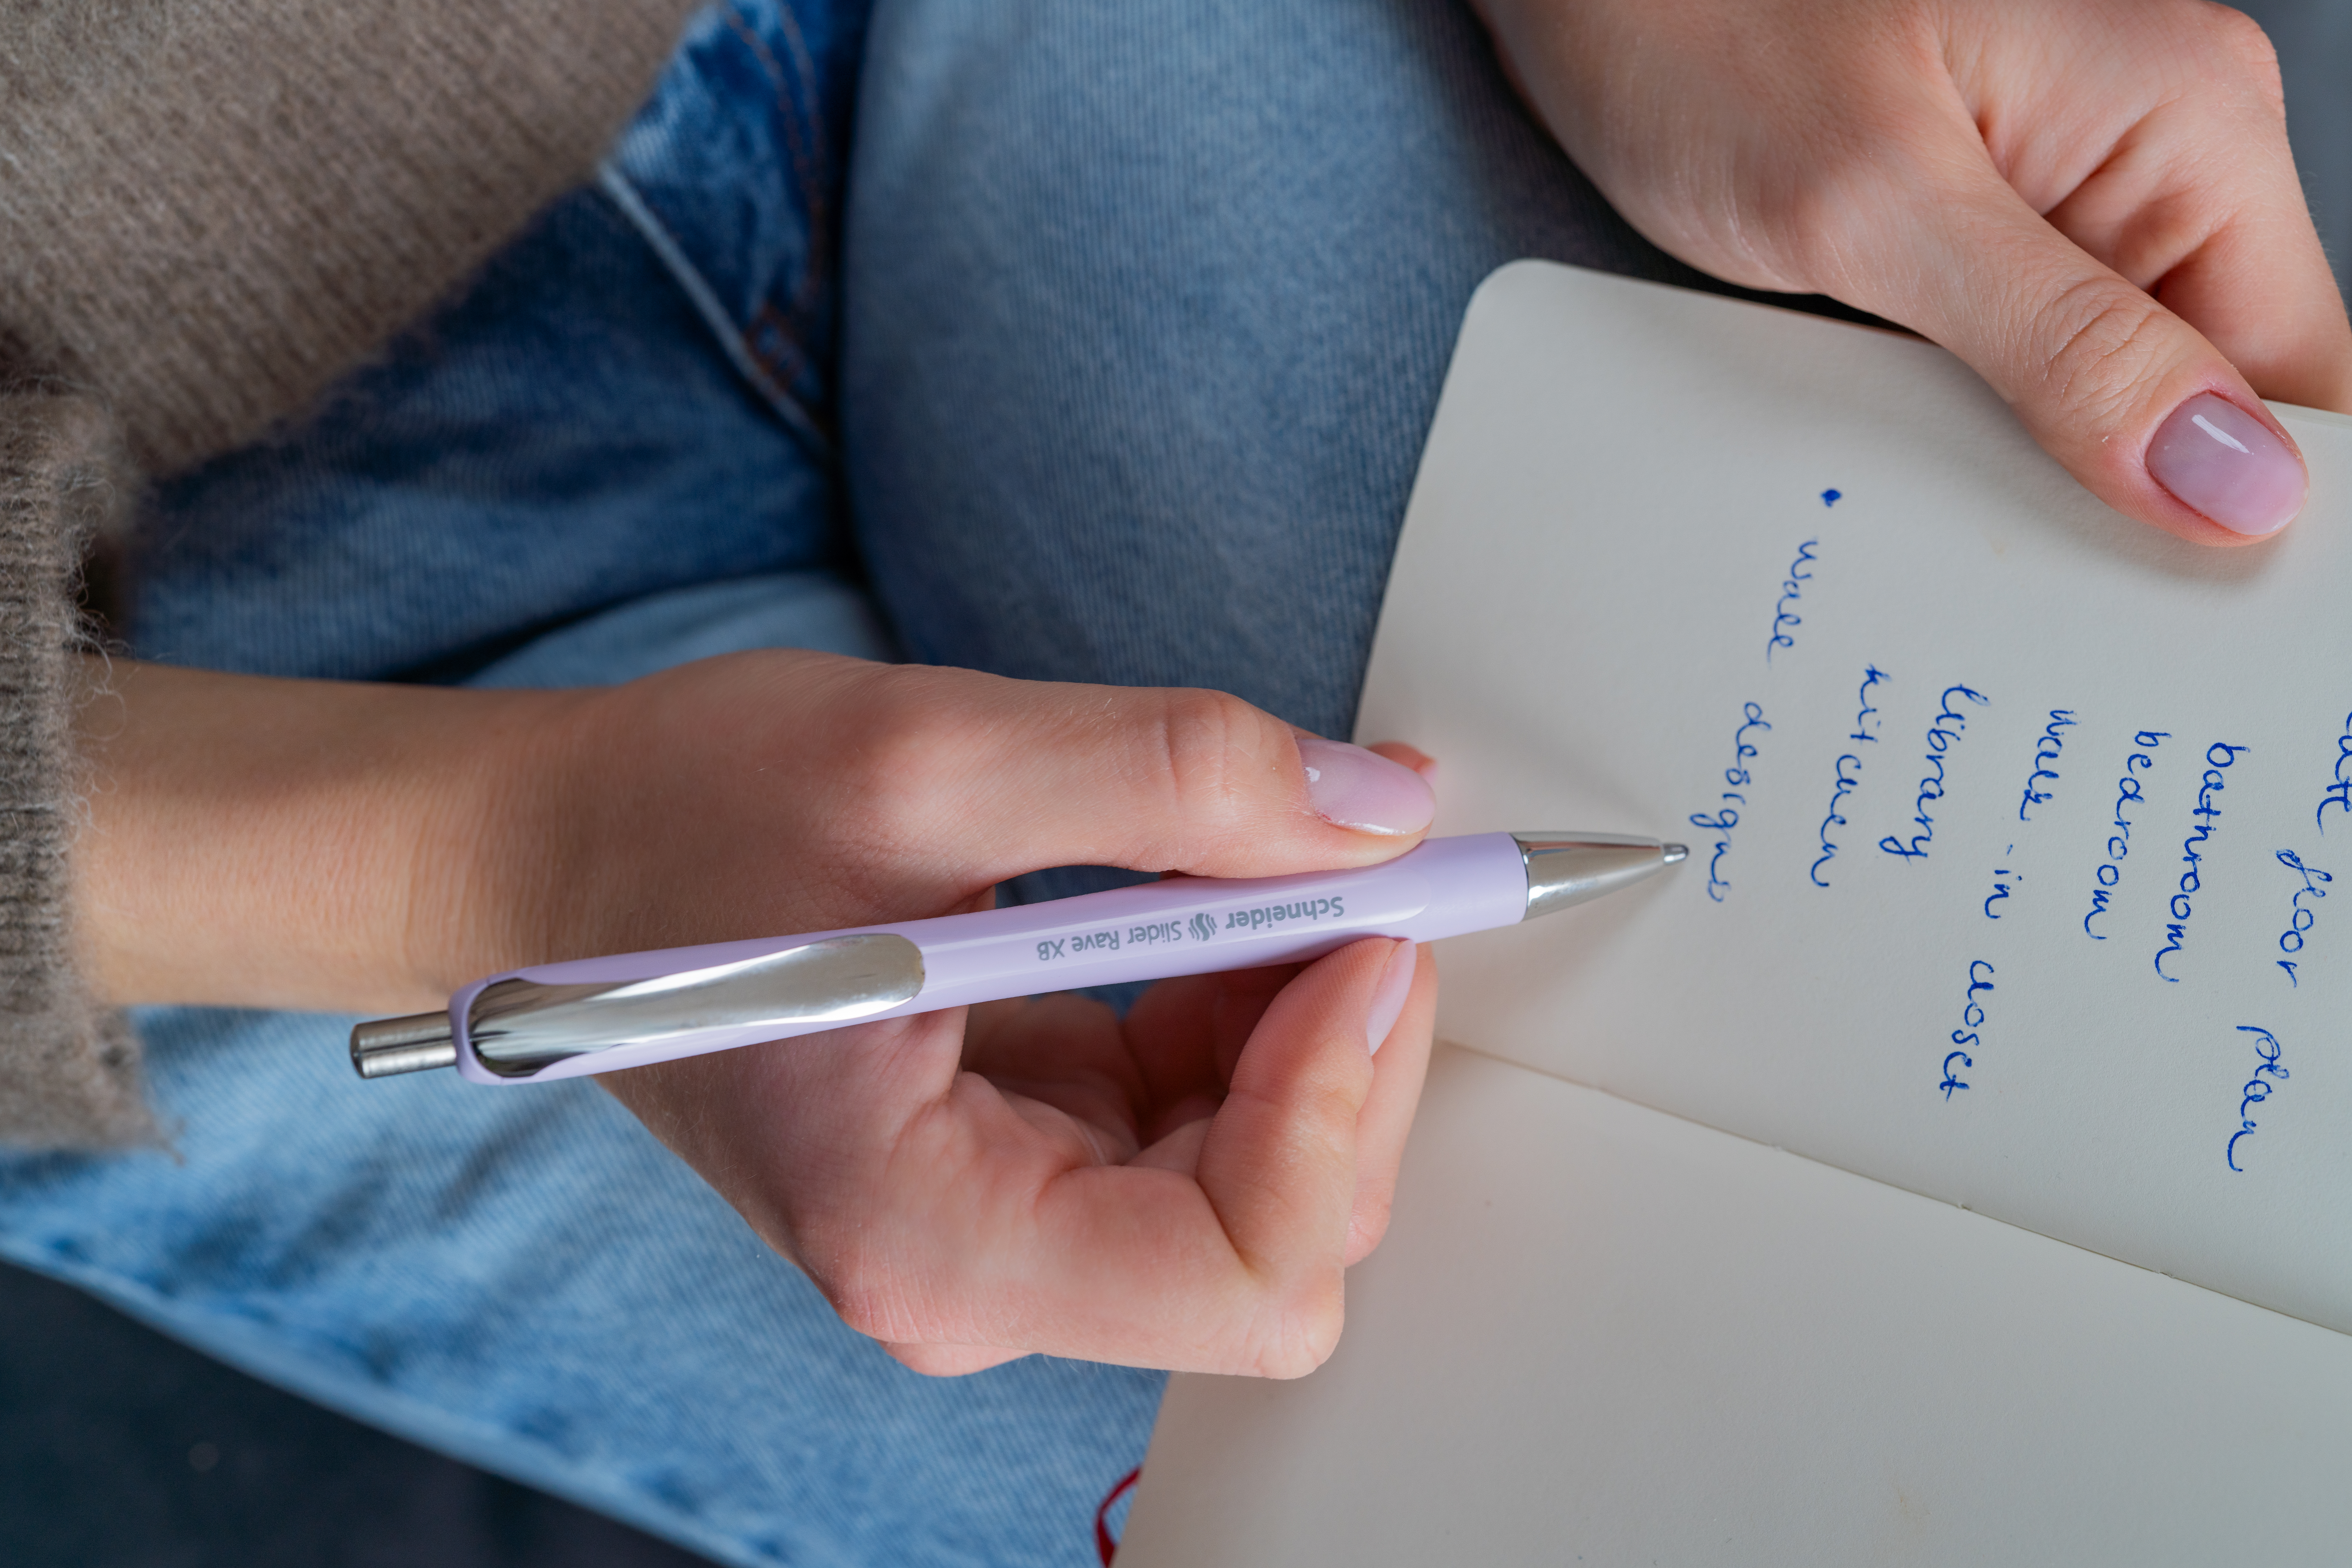 floor plan
bathroom
bedroom
walk-in closet
library
kitchen
• wall designs
Schneider Slider Rave XB